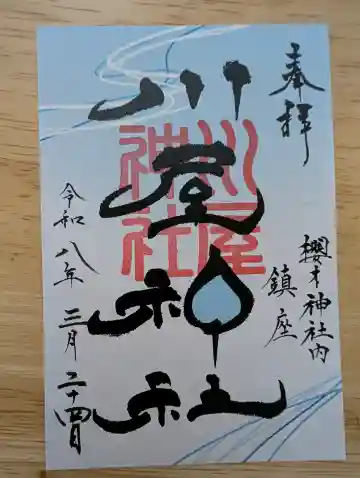 奉拝
櫻木神社内
鎮座
川屋神社
川屋
神社
令和八年三月二十四日